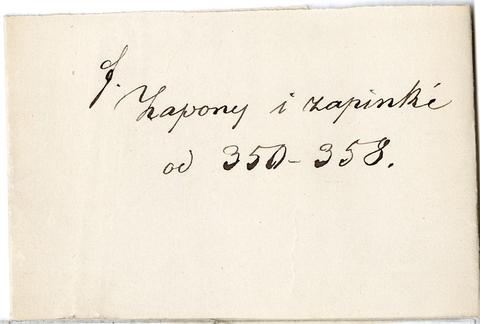 f.
Zapony i zapinké
od 350-358.